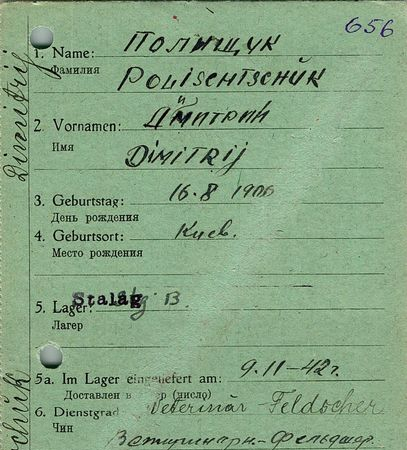 656
1. Name: Полищук
Фамилия Polischtschuk
2. Vornamen: Дмитрий
Имя Dimitrij
3. Geburtstag: 16.8 1906
День рождения
4. Geburtsort: Киев.
Место рождения
5. Lager: Stalag B.
Лагер
5a. Im Lager eingeliefert am: 9.11-42 г.
Доставлен в (число)
6. Dienstgrad Veterinär-Feldscher
Чин Ветиринарн-Фельдшер.
Dimitrij